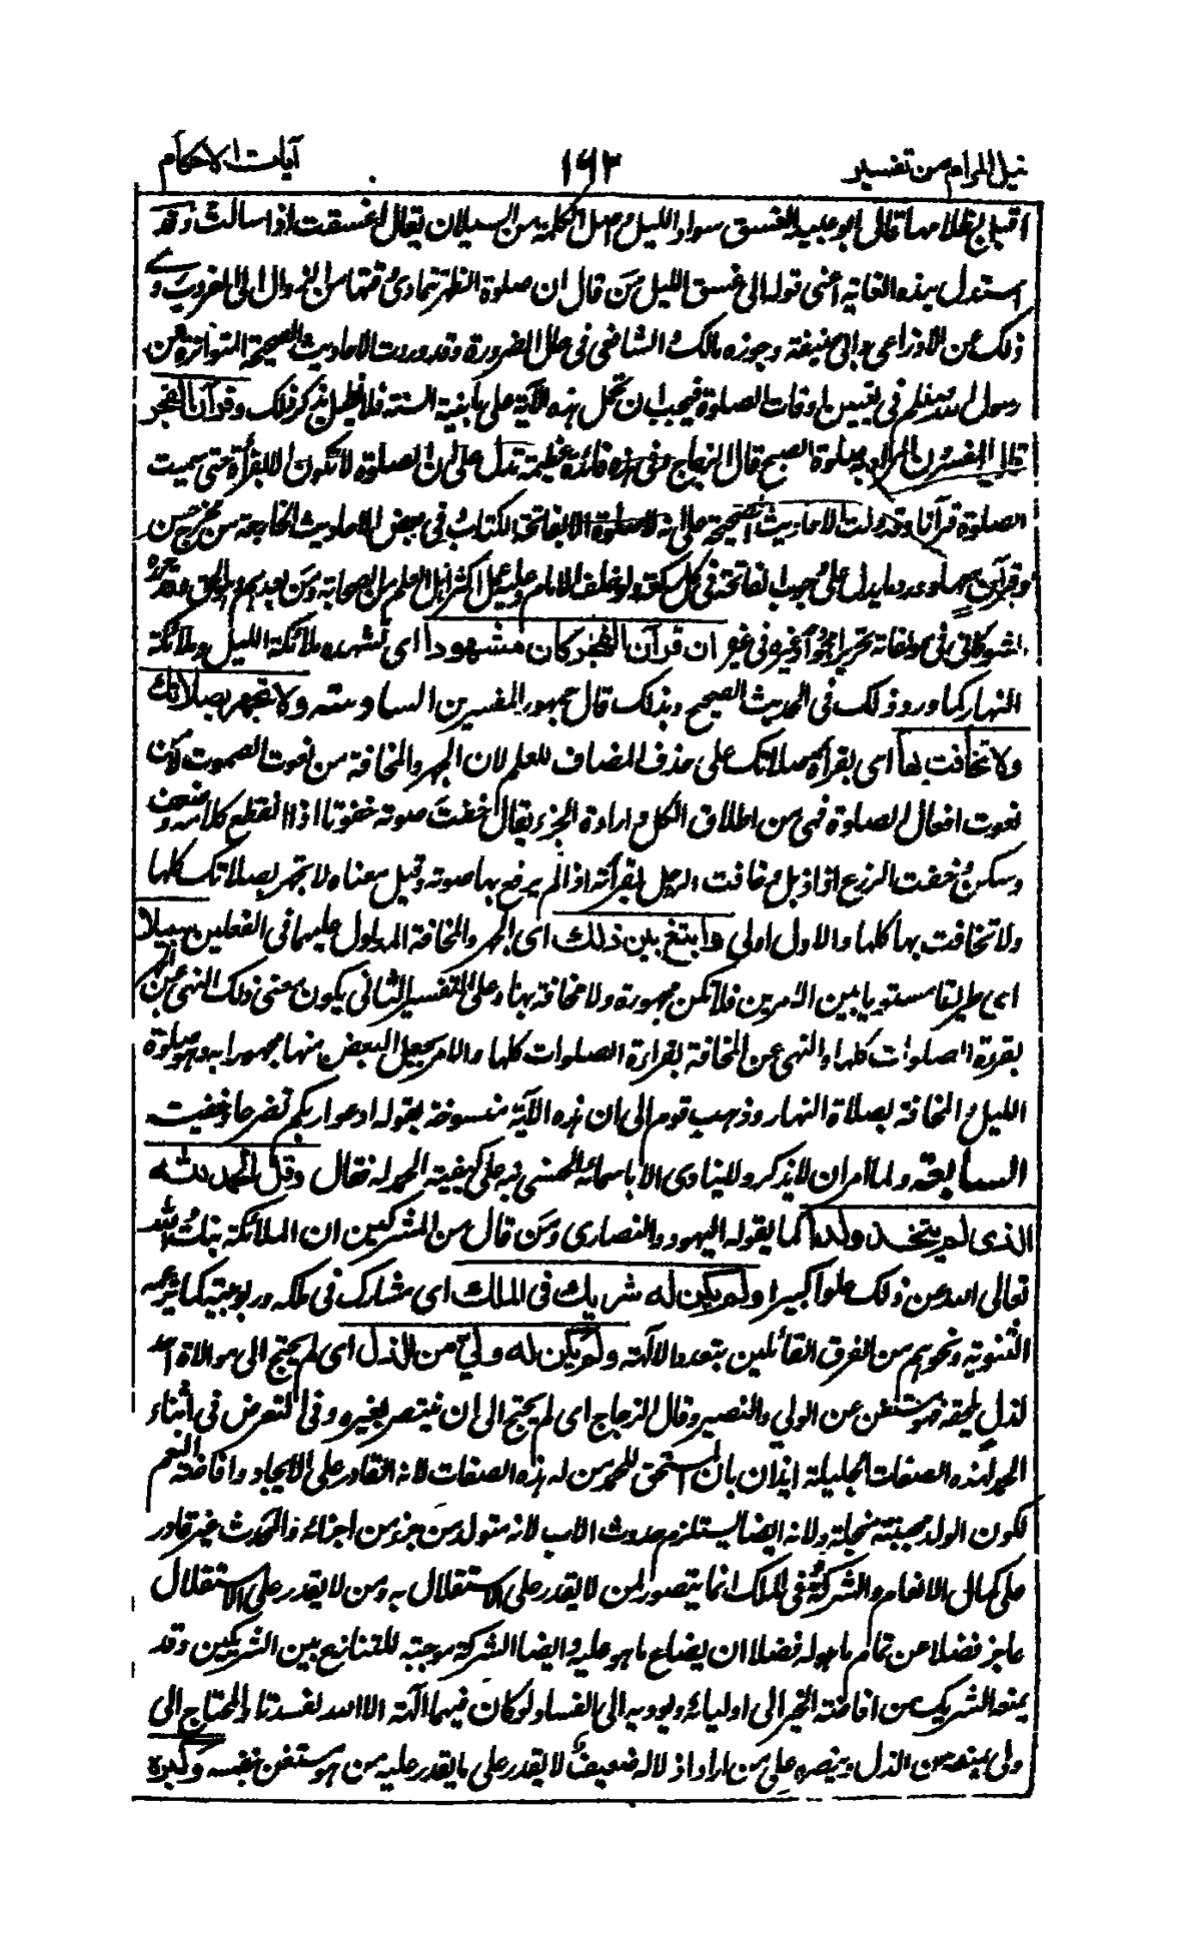 نيل المرام من تفسير ١٦٣ آيات الاحكام
اقبل بظلامها قال ابو عبيد الغسق سواد الليل واصل الكلمة من السيلان يقال غسقت اذا سالت وقد
استدل بهذه الغاية اعنى قوله الى غسق الليل من قال ان صلوة الظهر يتمادى وقتها من الزوال الى الغروب روى
ذلك عن الاوزاعى وابى حنيفة وجوزه مالك والشافعى فى حال الضرورة وقد وردت الاحاديث الصحيحة المتواترة عن
رسول الله صلعم فى تعيين اوقات الصلوة فيجب ان تحمل هذه الآية على ما بينته السنة فلا نطيل بذكر ذلك وقرآن الفجر
قال المفسرون المراد به صلوة الصبح قال الزجاج وفى هذه فائدة عظيمة تدل على ان الصلوة لا تكون الا بقرأة حتى سميت
الصلوة قرآنا وقد دلت الاحاديث الصحيحة على انه لا صلوة الا بفاتحة الكتاب وفى بعض الاحاديث الخارجة من مخرج حسن
وقرآن معها وورد ما يدل على وجوب الفاتحة فى كل ركعة ولو خلف الامام وعليه عمل اكثر اهل العلم من الصحابة ومن بعدهم وهو الحق وقد حرره
الشوكانى فى مؤلفاته تحريرا مجودا وغيره فى غيرها ان قرآن الفجر كان مشهودا اى تشهده ملائكة الليل وملائكة
النهار كما ورد ذلك فى الحديث الصحيح وبذلك قال جمهور المفسرين السادسة ولا تجهر بصلاتك
ولا تخافت بها اى بقرأة صلاتك على حذف المضاف للعلم لان الجهر والمخافتة من نعوت الصوت لا من
نعوت افعال الصلوة فهى من اطلاق الكل وارادة الجزء يقال خفت صوته خفوتا اذا انقطع كلامه وضعف
وسكن وخفت الزرع اذا ذبل وخافت الرجل بقرأته اذا لم يرفع بها صوته وقيل معناه لا تجهر بصلاتك كلها
ولا تخافت بها كلها والاول اولى وابتغ بين ذلك اى الجهر والمخافتة المدلول عليهما فى الفعلين سبيلا
اى طريقا مستويا بين الامرين فلا تكن مجهورة ولا مخافتة بها وعلى التفسير الثانى يكون معنى ذلك النهى عن الجهر
بقرءة الصلوات كلها والنهى عن المخافتة بقراءة الصلوات كلها والامر بجعل البعض منها مجهورا به وهو صلوة
الليل والمخافتة بصلاة النهار وذهب قوم الى ان هذه الآية منسوخة بقوله ادعوا ربكم تضرعا وخفية
السابعة ولما امر ان لا يذكر ولا ينادى الا باسمائه الحسنى نبه على كيفية الحمد له فقال وقل الحمد لله
الذى لم يتخذ ولدا كما يقوله اليهود والنصارى ومن قال من المشركين ان الملائكة بنات الله
تعالى الله عن ذلك علوا كبيرا ولم يكن له شريك فى الملك اى مشارك فى ملكه وربوبيته كما تزعمه
الثنوية ونحوهم من الفرق القائلين بتعدد الآلهة ولم يكن له ولي من الذل اى لم يحتج الى موالاة احد
لذل يلحقه فهو مستغن عن الولي والنصير وقال الزجاج اى لم يحتج الى ان ينتصر بغيره وفى التعرض فى اثناء
الحمد لهذه الصفات الجليلة ايذان بان المستحق للحمد من له هذه الصفات لانه القادر على الايجاد وافاضة النعم
لكون الولد مجبنة مبخلة ولانه ايضا يستلزم حدوث الاب لانه متولد من جزء من اجزائه والمحدث غير قادر
على كمال الانعام والشركة فى الملك انما يتصور لمن لا يقدر على الاستقلال به ومن لا يقدر على الاستقلال
عاجز فضلا عن تمام ما هو له فضلا ان يضاع ما هو عليه وايضا الشركة موجبة للتنازع بين الشريكين وقد
يمنعه الشريك من افاضة الخير الى اوليائه ويؤديه الى الفساد لو كان فيهما آلهة الا الله لفسدتا والمحتاج الى
ولى يمنعه من الذل وينصره على من اراد اذلاله ضعيف لا يقدر على ما يقدر عليه من هو مستغن بنفسه وكبره